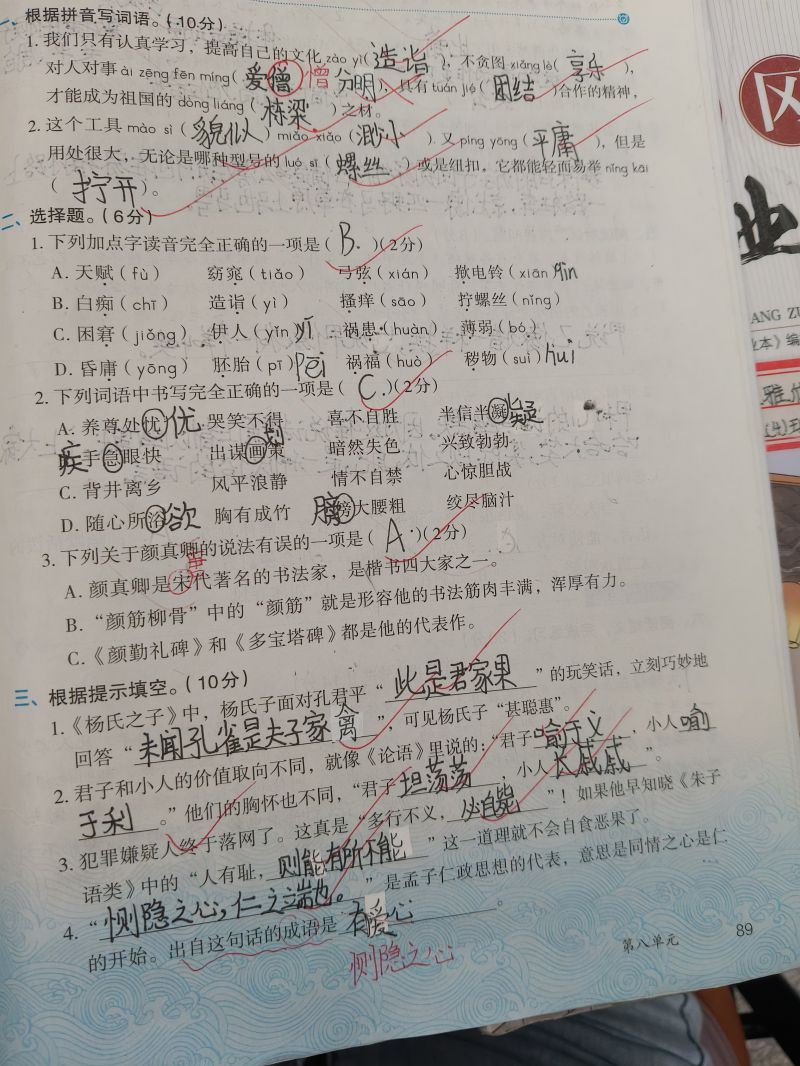 一、根据拼音写词语。(10分)
1. 我们只有认真学习，提高自己的文化 zào yì( 造诣 )，不贪图 xiǎng lè( 享乐 )，
对人对事 ài zēng fēn míng( 爱僧 憎 分明 )，具有 tuán jié( 团结 )合作的精神，
才能成为祖国的 dòng liáng( 栋梁 )之材。
2. 这个工具 mào sì( 貌似 ) miǎo xiǎo( 渺小 )，又 píng yōng( 平庸 )，但是
用处很大，无论是哪种型号的 luó sī( 螺丝 )或是纽扣，它都能轻而易举 nǐng kāi
( 拧开 )。
二、选择题。(6分)
1. 下列加点字读音完全正确的一项是( B. )(2分)
A. 天赋(fù) 窈窕(tiǎo) 弓弦(xián) 揿电铃(xiān qìn
B. 白痴(chī) 造诣(yì) 搔痒(sāo) 拧螺丝(nǐng)
C. 困窘(jiǒng) 伊人(yǐn yī 祸患(huàn) 薄弱(bó)
D. 昏庸(yōng) 胚胎(pī) pēi 祸福(huò) 秽物(suì) huì
2. 下列词语中书写完全正确的一项是( C. )(2分)
A. 养尊处忧 优 哭笑不得 喜不自胜 半信半凝 疑
疾手急眼快 出谋画策 划 暗然失色 兴致勃勃
C. 背井离乡 风平浪静 情不自禁 心惊胆战
D. 随心所浴 欲 胸有成竹 膀 榜大腰粗 绞尽脑汁
3. 下列关于颜真卿的说法有误的一项是( A )(2分)
A. 颜真卿是宋代著名的书法家，是楷书四大家之一。
唐
B. “颜筋柳骨”中的“颜筋”就是形容他的书法筋肉丰满，浑厚有力。
C.《颜勤礼碑》和《多宝塔碑》都是他的代表作。
三、根据提示填空。(10分)
1.《杨氏之子》中，杨氏子面对孔君平“ 此是君家果 ”的玩笑话，立刻巧妙地
回答“ 未闻孔雀是夫子家禽 ”，可见杨氏子“甚聪惠”。
2. 君子和小人的价值取向不同，就像《论语》里说的：“君子 喻于义 ，小人 喻
于利 。”他们的胸怀也不同，“君子 坦荡荡 ，小人 长戚戚 ”。
3. 犯罪嫌疑人终于落网了。这真是“多行不义， 必自毙 ”！如果他早知晓《朱子
语类》中的“人有耻， 则能有所不能 ”这一道理就不会自食恶果了。
4. “ 恻隐之心，仁之端也。 ”是孟子仁政思想的代表，意思是同情之心是仁
的开始。出自这句话的成语是 有爱心 。
恻隐之心
第八单元 89
业
ANG ZU
业本》编